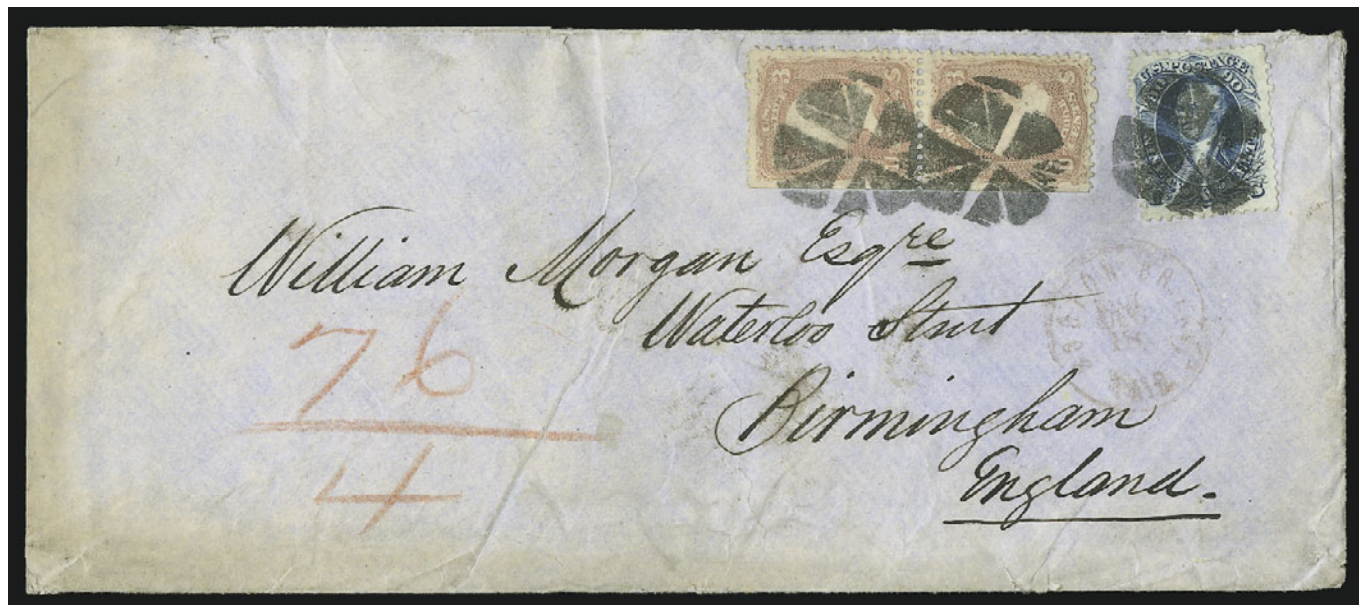 U.S. POSTAGE
90
3
3
William Morgan Esqre
Waterloo Street
Birmingham
England.
76
4